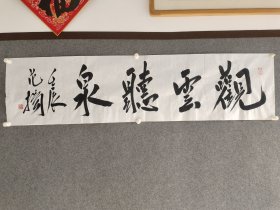 觀雲聽泉
壬辰